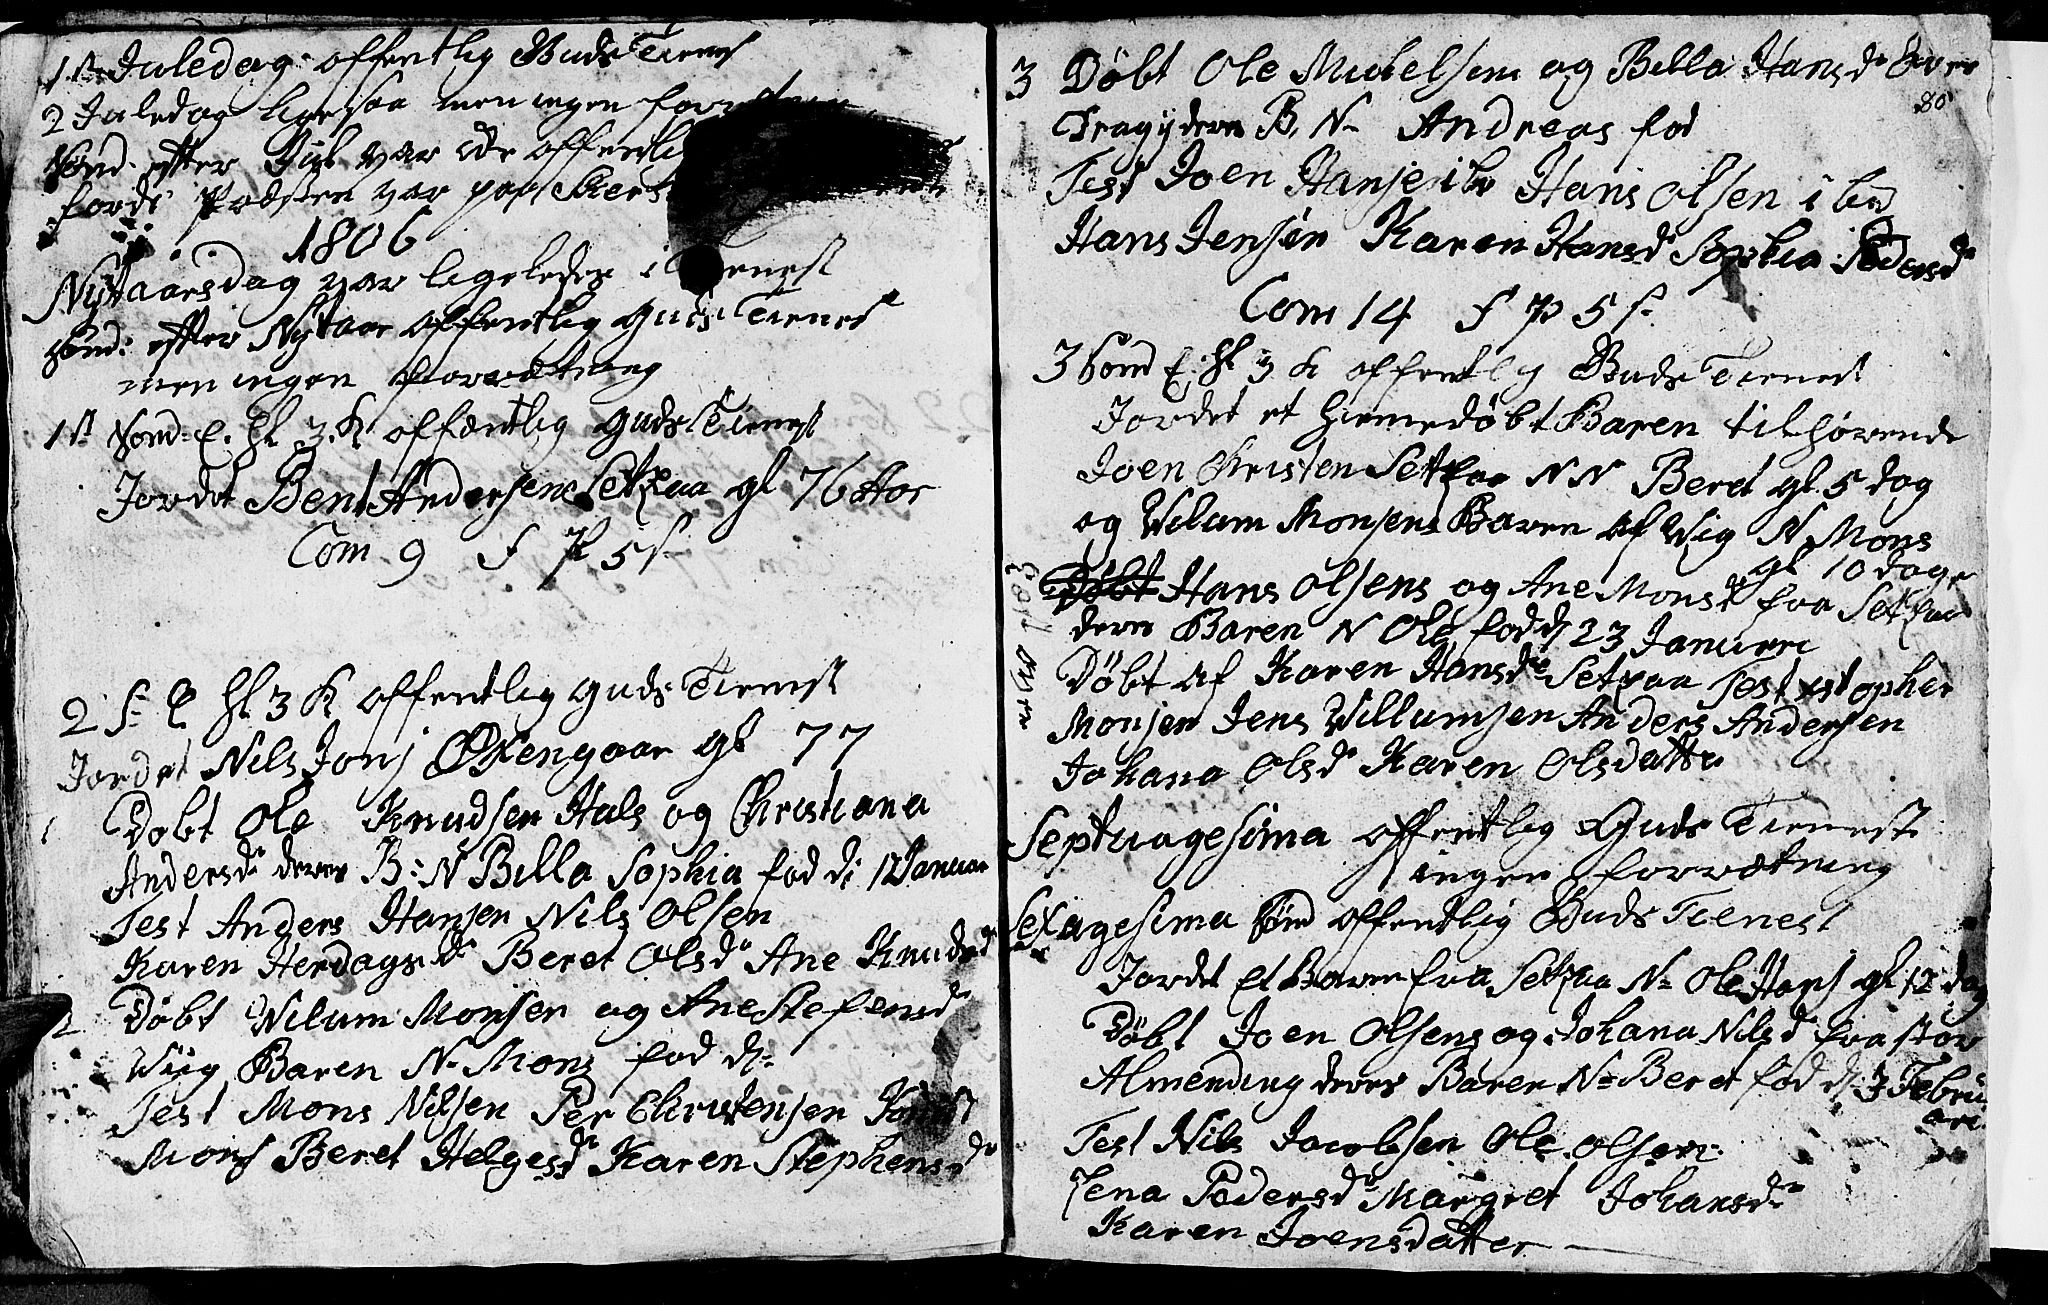 1st Juledag offentlig Guds Tienest
2 Juledag ligesaa men ingen
Sønd: efter Jul var ide offentlig
fordi Præsten var paa
1806
Nytaarsdag var ligeledes Tienest
Sønd: efter Nytaar offentlig Guds Tienest
men ingen forrætning
1st Sønd: E. Hl 3. K offentlig Guds Tienest
Jordet Bent Andersen Setraa gl 76 Aar
Com 9 f P 5 s
2 S: E Hl 3 K offentlig Guds Tienest
Jordet Nils Jonj Øxengaar gl 77
1 Døbt Ole Knudsen Hals og Christiana
Andersdr deres B: N Billa Sophia fød d: 12 Januar
Test Anders Hansen Nils Olsen
Karen Herdagsdr Beret Olsdr Ane Knudsdr
2 Døbt Wilum Monsen og Ane Stefensdr
Wiig Baren N: Mons fød d:
Test Mons Nilsen Per Christensen
Mons Beret Helgesdr Karen Stephensdr
80
3 Døbt Ole Mickelsen og Billa Hansdr
deres B, N: Andreas fød
Test Joen Hans Olsen ibd
Hans Jensen Karen Hansdr Sophia Pedersdr
Com 14 f P 5 s
3 Sønd E: Hl 3 K offentlig Guds Tienest
Jordet et hiemedøbt Baren tilhørende
Joen Christen Setraa NN Beret gl. 5 dag
og Wilum Monsens Baren af Wig N Mons
gl 10 dage
Døbt Hans Olsens og Ane Monsdr fra Setraa
deres Baren N Ole fød d 23 Januari
Døbt af Karen Hansdr Setraa Test
Monsen Jens Willumsen Anders Andersen
Johana Olsdr Karen Olsdatter
Septuagesima offentlig Guds Tieneste
ingen forrætning
Sexagesima Sønd offentlig Guds Tienest
Jordet Et Baren fra Setraa N: Ole Hansj gl 12 dag
Døbt Joen Olsens og Johana Nilsdr fra stor
Almending deres Baren N: Beret fød d: 3 Febru
ari
Test Nils Jacobsen Ole Olsen
Lena Pedersdr Margret Johansdr
Karen Joensdatter